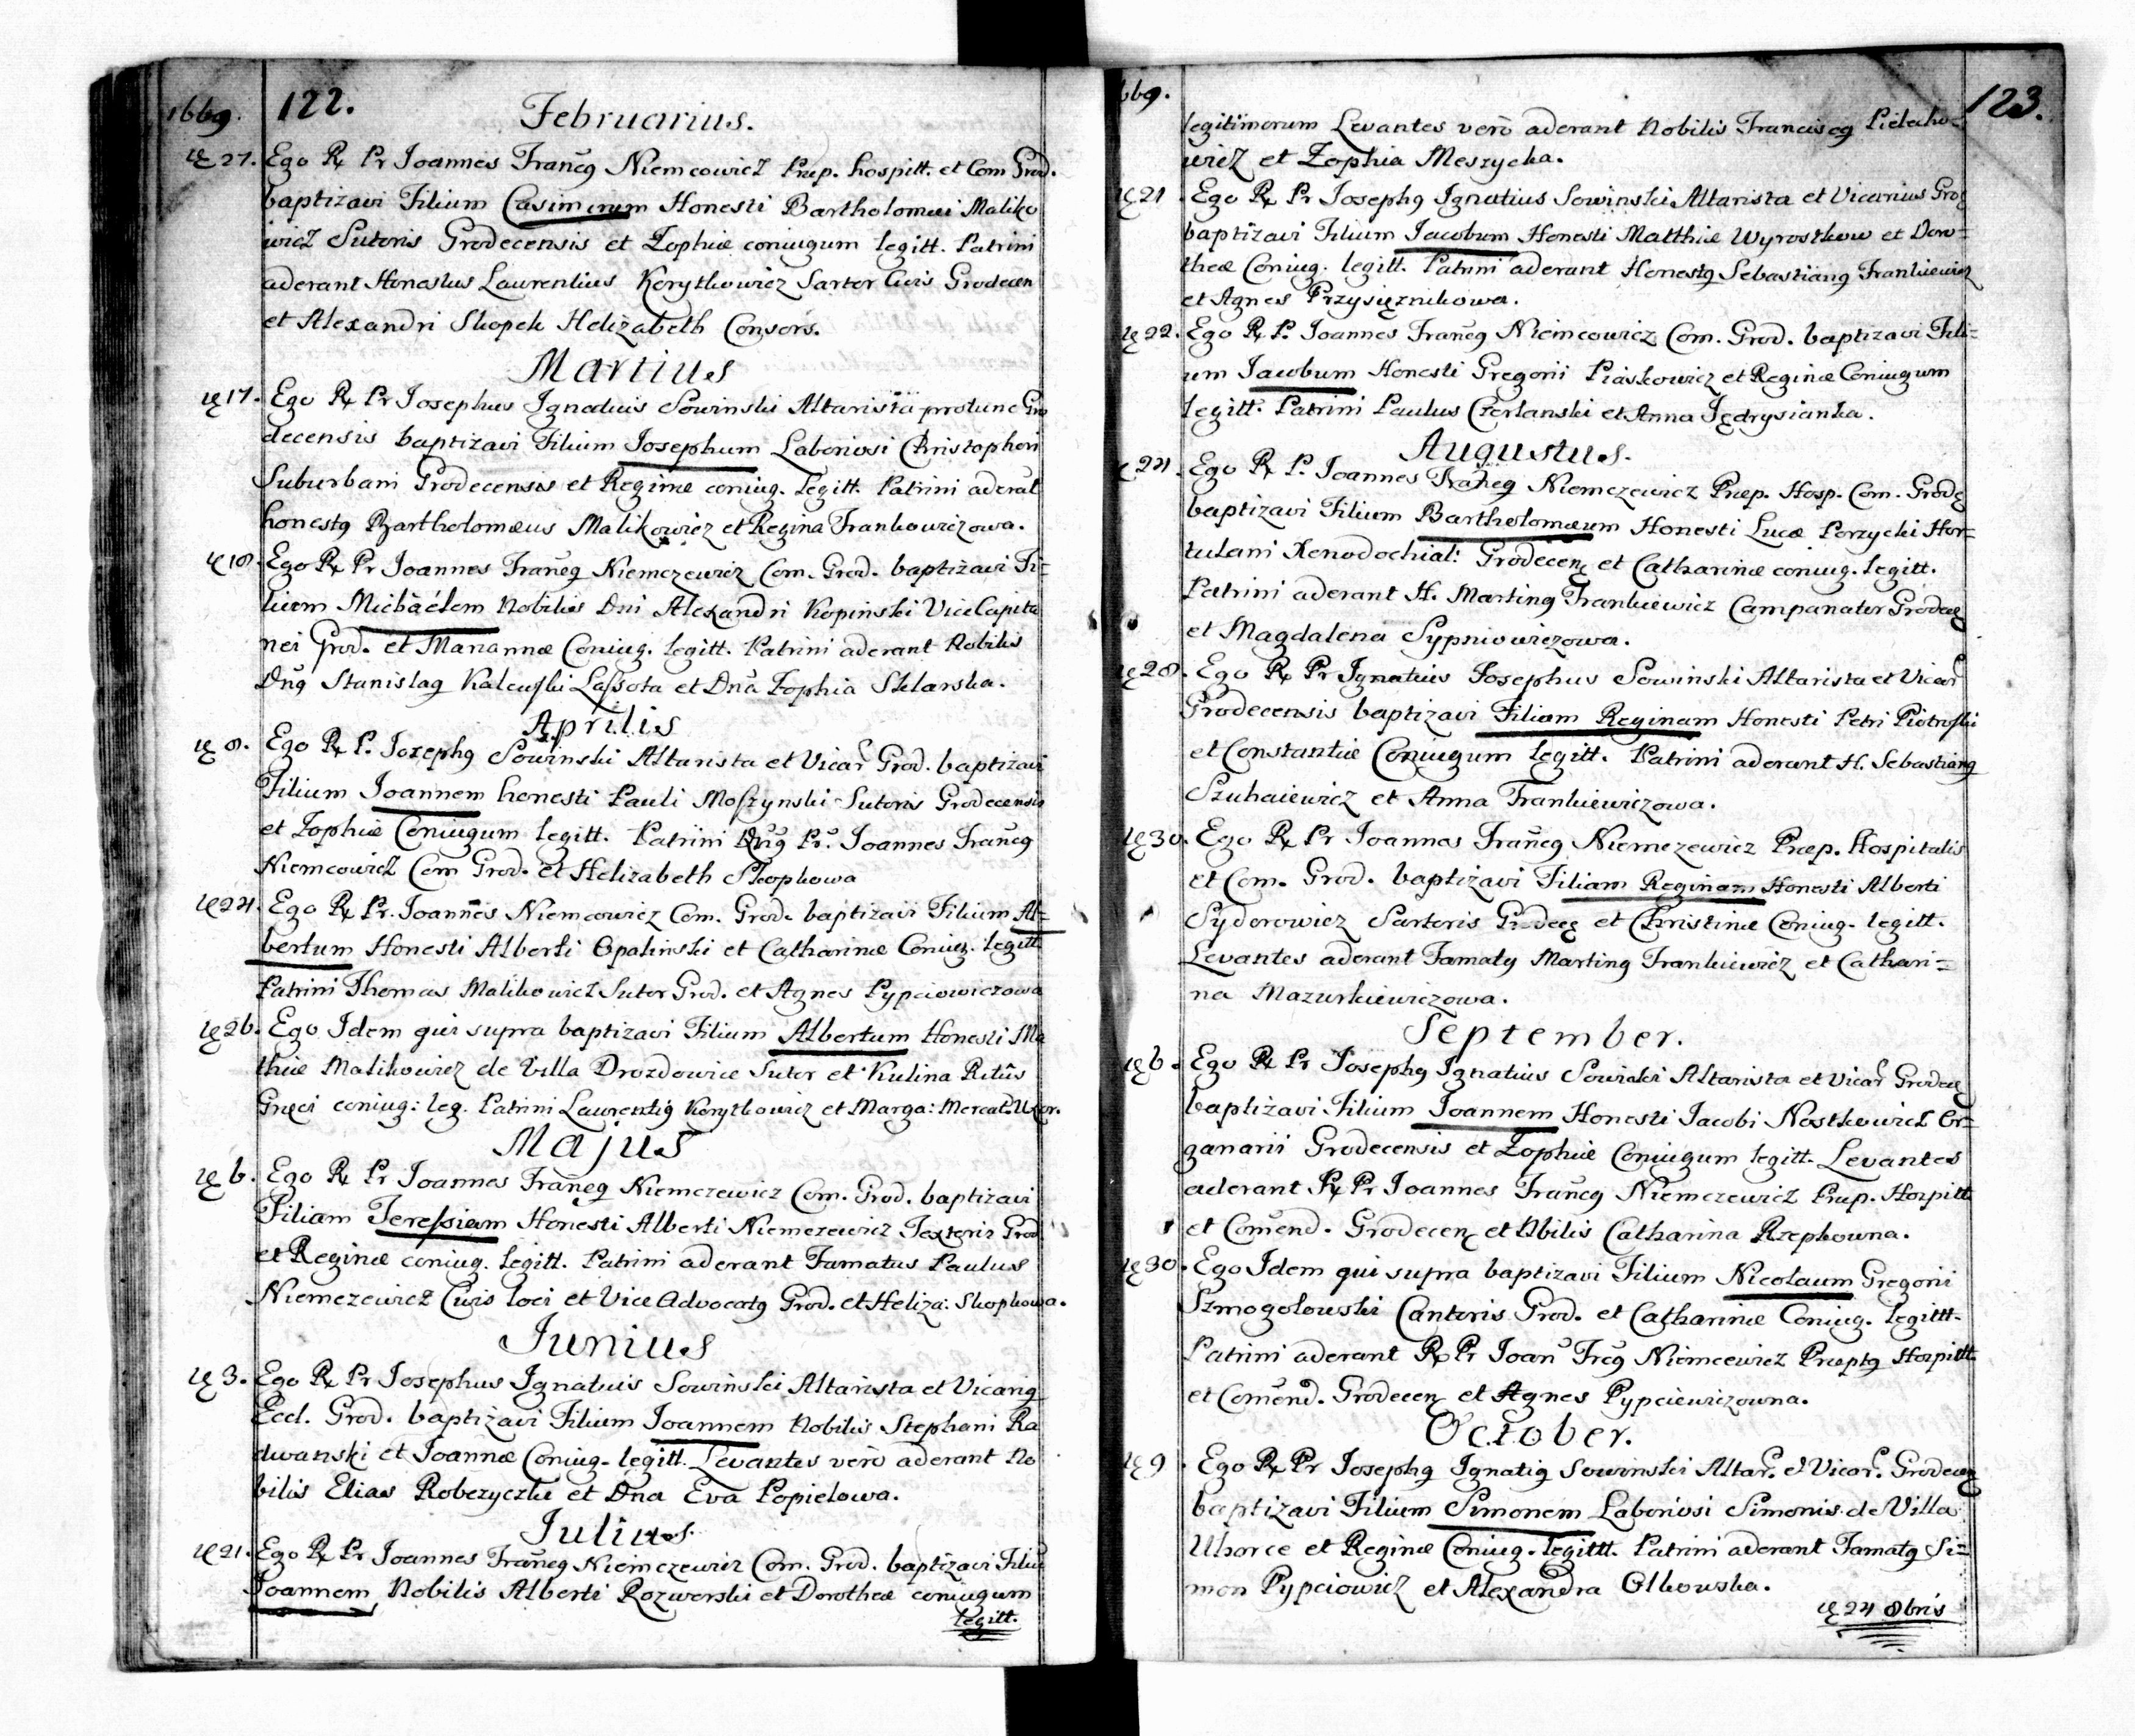 1669. 122.
Februarius.
27. Ego R. Pr Joannes Franc9 Niemcowicz Præp. hospitt. et Com Grod.
baptizavi Filium Casimirum Honesti Bartholomæi Maliko
wicz Sutoris Grodecensis et Zophiæ coniugum legitt. Patrini
aderant Honestus Laurentius Korytkowicz Sartor Civis Grodecen
et Alexandri Skopek Helizabeth Consors.
Martius
17. Ego R. Pr Josephus Ignatius Sowinski Altarista protunc Gro
decensis baptizavi Filium Josephum Laboriosi Christophori
Suburbani Grodecensis et Reginæ coniug. legitt. Patrini aderāt
honest9 Bartholomæus Malikowicz et Regina Frankowiczowa.
18. Ego R. Pr Joannes Franc9 Niemczewicz Com. Grod. baptizavi Fi=
lium Michäélem Nobilis Dni Alexandri Kopinski ViceCapita
nei Grod. et Mariannæ Coniug. legitt. Patrini aderant Nobilis
Dn9 Stanisla9 Kalcuski Lassota et Dna Zophia Sklarska.
Aprilis
8. Ego R. P. Joseph9 Sowinski Altarista et Vicar Grod. baptizavi
Filium Joannem honesti Pauli Moszynski Sutoris Grodecensis
et Zophiæ Coniugum legitt. Patrini Dn9 Pr. Joannes Franc9
Niemcowicz Com Grod. et Helizabeth Skopkowa
24. Ego R. Pr. Joannes Niemcowicz Com. Grod. baptizavi Filium Al=
bertum Honesti Alberti Opalinski et Catharinæ Coniug. legitt.
Patrini Thomas Malikowicz Sutor Grod. et Agnes Pypciowiczowa
26. Ego Idem qui supra baptizavi Filium Albertum Honesti Ma
thiæ Malikowicz de Villa Drozdowice Sutor et Kulina Ritûs
Græci coniug: leg. Patrini Laurenti9 Korytkowicz et Marga: Mercat. Uxor.
Majus
6. Ego R. Pr Joannes Franc9 Niemczewicz Com. Grod. baptizavi
Filiam Teressiam Honesti Alberti Niemczewicz Textoris Grod.
et Reginæ coniug. legitt. Patrini aderant Famatus Paulus
Niemczewicz Civis loci et Vice Advocat9 Grod. et Heliza: Skopkowa.
Junius
3. Ego R. Pr Josephus Ignatius Sowinski Altarista et Vicari9
Eccl. Grod. baptizavi Filium Joannem Nobilis Stephani Ra
dwanski et Joannæ Coniug. legitt. Levantes verò aderant No
bilis Elias Robczyczki et Dna Eva Popielowa.
Julius.
21. Ego R. Pr Joannes Franc9 Niemczewicz Com. Grod. baptizavi Filiū
Joannem, Nobilis Alberti Rozworski et Dorotheæ coniugum
legitt.
669. 123.
legitimorum Levantes verò aderant Nobilis Francisc9 Pielecho=
wicz et Zophia Meszycka.
21 Ego R. Pr Joseph9 Ignatius Sowinski Altarista et Vicarius Grod
baptizavi Filium Jacobum Honesti Matthiæ Wyrostkow et Doro=
theæ Coniug. legitt. Patrini aderant Honest9 Sebastian9 Frankiewicz
et Agnes Przysięznikowa.
22. Ego R. P. Joannes Franc9 Niemcowicz Com. Grod. baptizavi Fili=
um Jacobum Honesti Gregorii Piaskowicz et Reginæ Coniugum
legitt. Patrini Paulus Czerlanski et Anna Jędrysianka.
Augustus.
24. Ego R. P. Joannes Franc9 Niemczewicz Præp. Hosp. Com. Grod
baptizavi Filium Bartholomæum Honesti Lucæ Porzycki Hor=
tulani Xenodochial: Grodecen et Catharinæ coniug. legitt.
Patrini aderant H. Martin9 Frankiewicz Campanator Grodece
et Magdalena Sypniowiczowa.
28. Ego R. Pr Ignatius Josephus Sowinski Altarista et Vicar
Grodecensis baptizavi Filiam Reginam Honesti Petri Piotroski
et Constantiæ Coniugum legitt. Patrini aderant H. Sebastian9
Szuhaiewicz et Anna Frankiewiczowa.
30. Ego R. Pr Joannes Franc9 Niemczewicz Præp. Hospitalis
et Com. Grod. baptizavi Filiam Reginam Honesti Alberti
Syderowicz Sartoris Grodec et Christinæ Coniug. legitt.
Levantes aderant Famaty Martin9 Frankiewicz et Cathari=
na Mazurkiewiczowa.
September.
6. Ego R. Pr Joseph9 Ignatius Sowinski Altarista et Vicar Grodece
baptizavi Filium Joannem Honesti Jacobi Nostkowicz Or=
ganarii Grodecensis et Zophiæ Coniugum legitt. Levantes
aderant R. Pr Joannes Franc9 Niemczewicz Præp. Hospitt
et Comend. Grodecen et Nbilis Catharina Rzepkowna.
30. Ego Idem qui supra baptizavi Filium Nicolaum Gregorii
Szmogolowski Cantoris Grod. et Catharinæ Coniug. legittt.
Patrini aderant R. Pr Joan Frc9 Niemcewicz Præpt9 Hospittt.
et Comend. Grodecen et Agnes Pypciewiczowna.
October.
9. Ego R. Pr Joseph9 Ignati9 Sowinski Altar. et Vicar. Grodecen
baptizavi Filium Simonem Laboriosi Simonis de Villa
Uhorce et Reginæ Coniug. legittt. Patrini aderant Famat9 Si=
mon Pypciowicz et Alexandra Olkowska.
24 8bris